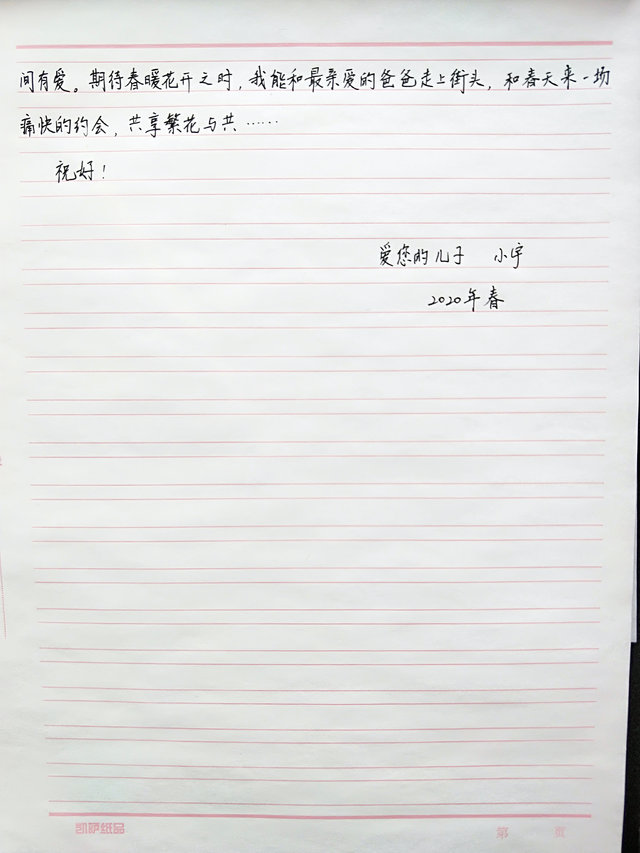 间有爱。期待春暖花开之时，我能和最亲爱的爸爸走上街头，和春天来一场
痛快的约会，共享繁花与共……
祝好！
爱您的儿子 小宇
2020年春
凯萨纸品
第 页